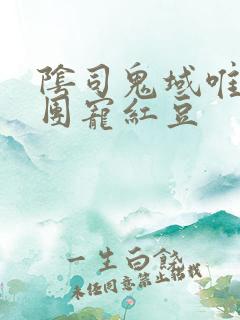 陰司鬼域唯
團寵紅豆
一生白餞
未經同意禁止轉載